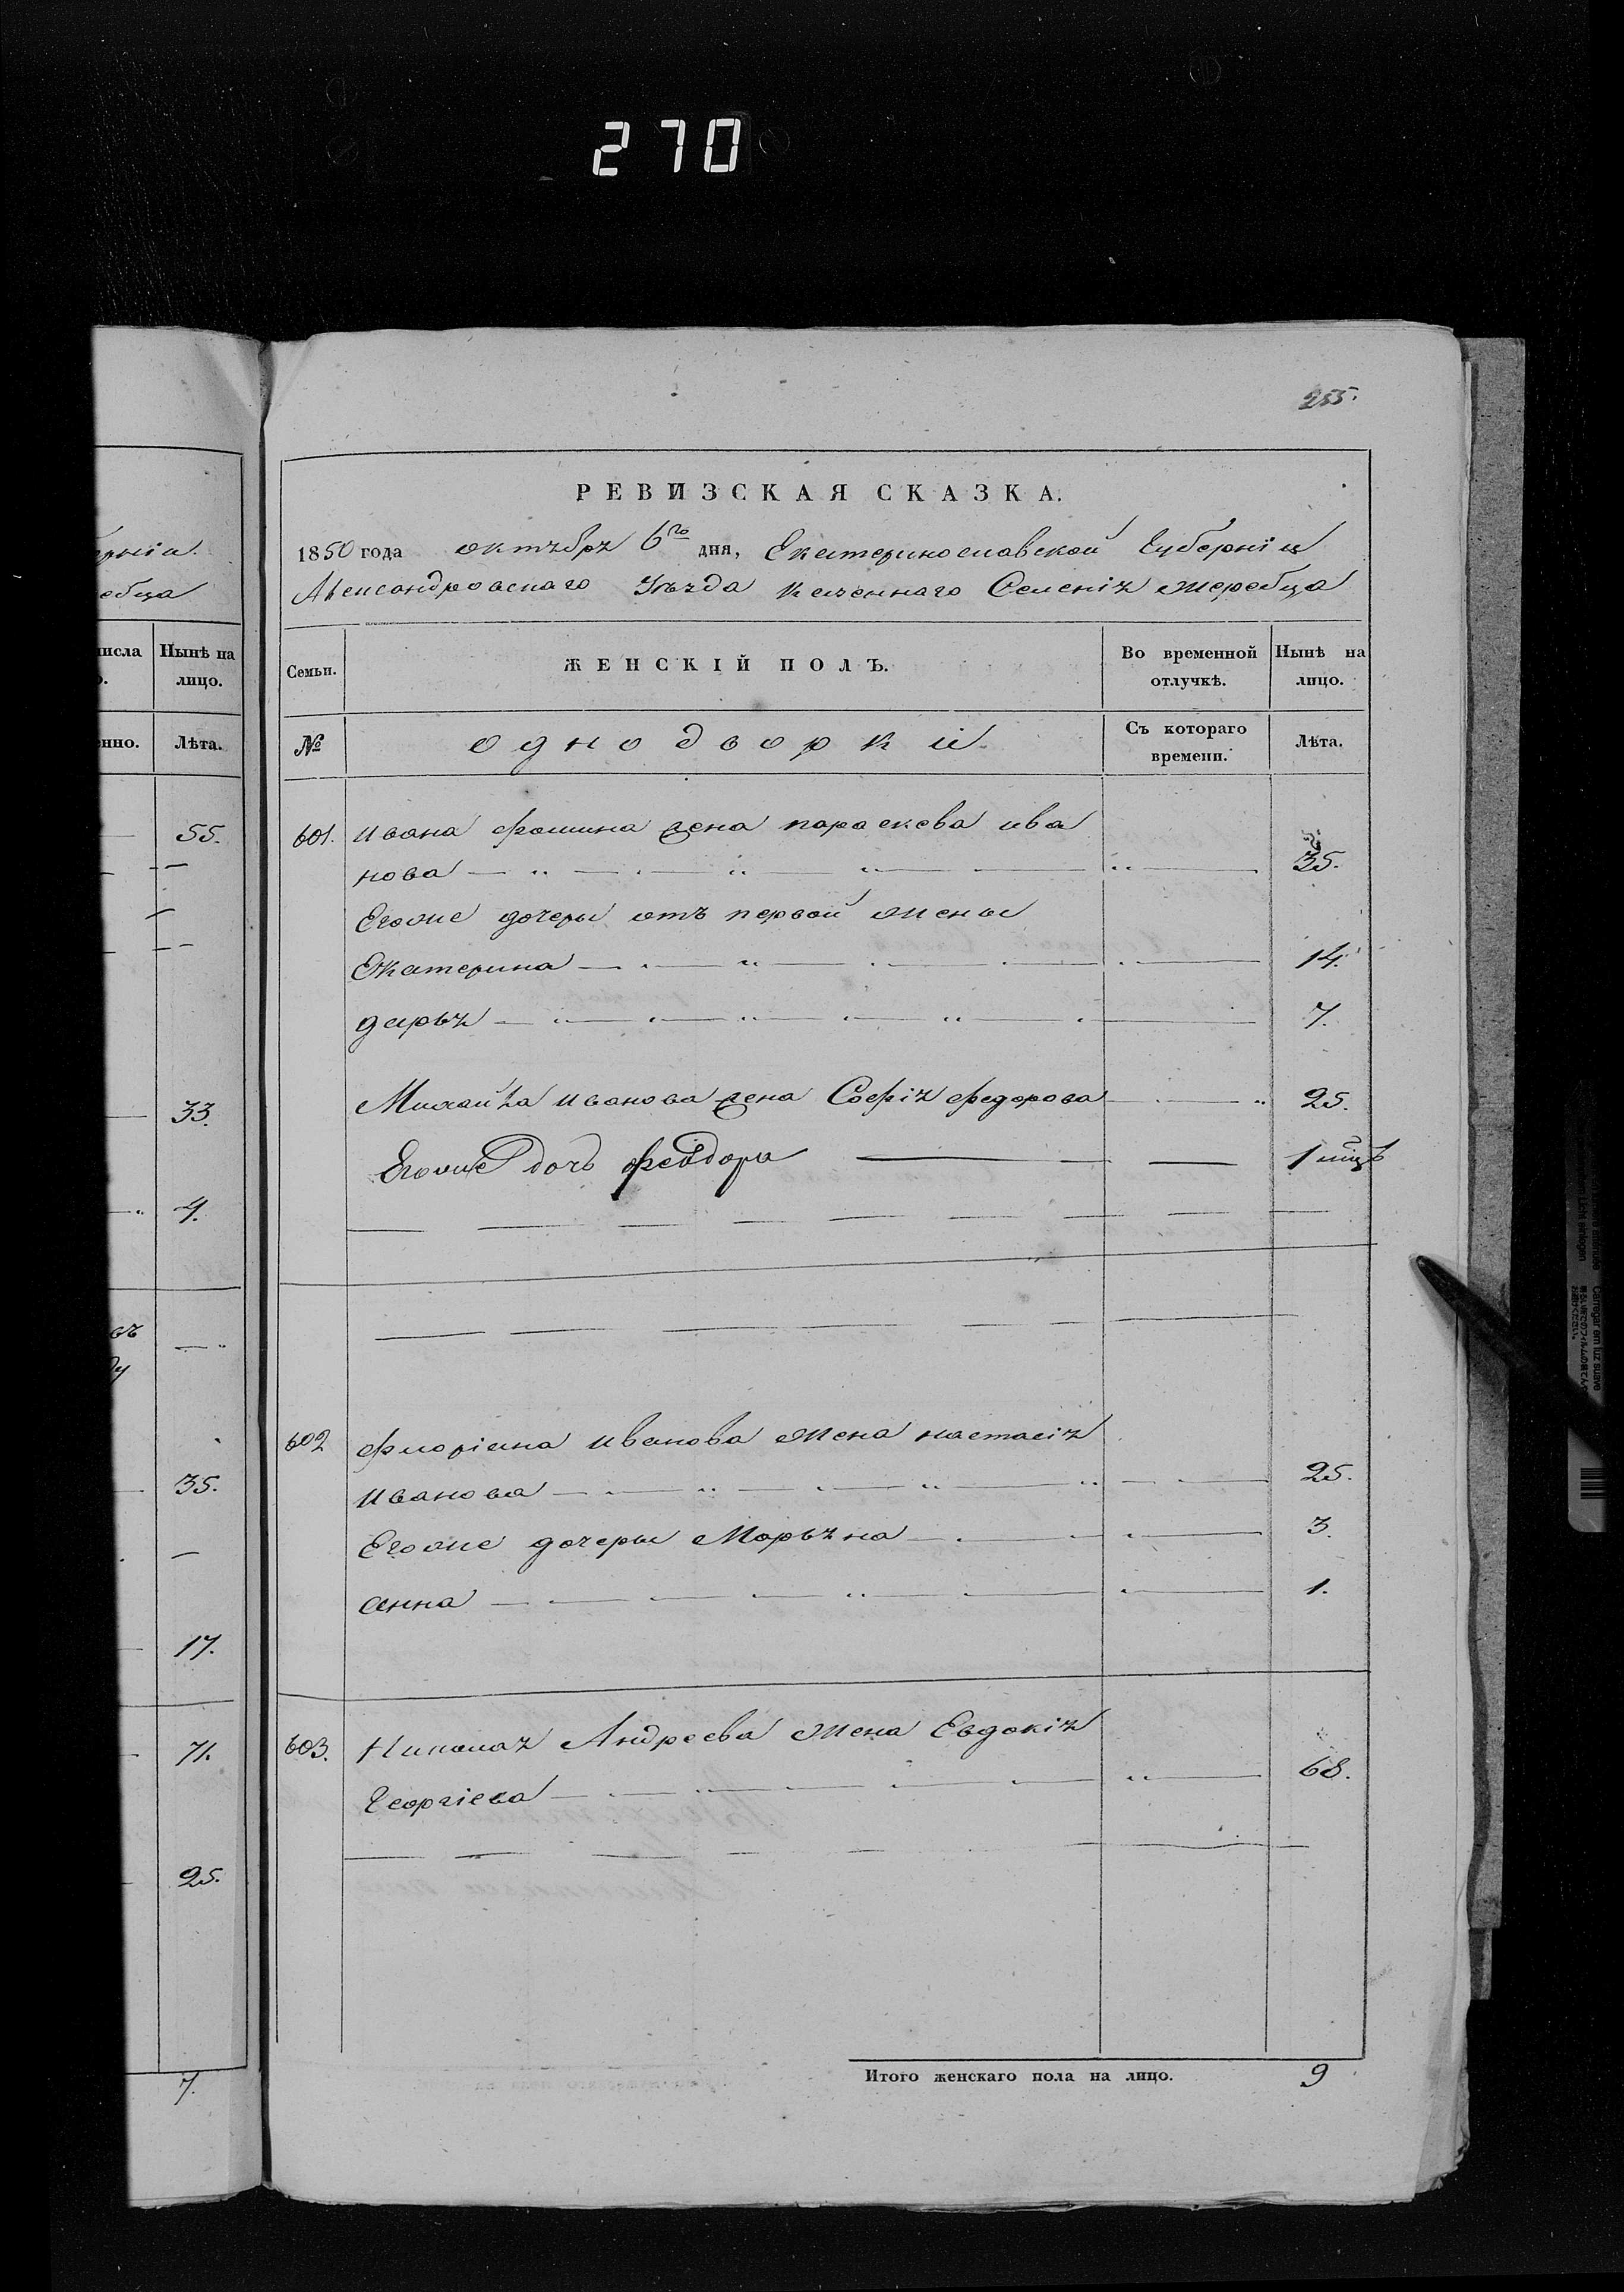 270
255.
РЕВИЗСКАЯ СКАЗКА.
1850 года октября 6го дня, Екатеринославской Губерніи
Александровскаго Уѣзда казеннаго Селенія жеребца
ебца
исла
Нынѣ на лицо.
Семьи.
ЖЕНСКІЙ ПОЛЪ.
Во временной отлучкѣ.
Нынѣ на лицо.
нно.
Лѣта.
№
однодворки
Съ котораго времени.
Лѣта.
55.
601. ивана фомина жена параскева ива
нова 35.
Егоже дочеры отъ первой жены
Екатерина 14.
дарья 7.
33. Михайла иванова жена Софія федорова 25.
Егоже дочь феодора 1 мцъ
4.
602 флоріана иванова жена настасія
35. иванова 25.
Егоже дочеры Марьяна 3.
анна 1.
17.
71. 603. Николая Андреева жена Евдокія
Георгіева 68.
25.
Итого женскаго пола на лицо. 9
7.